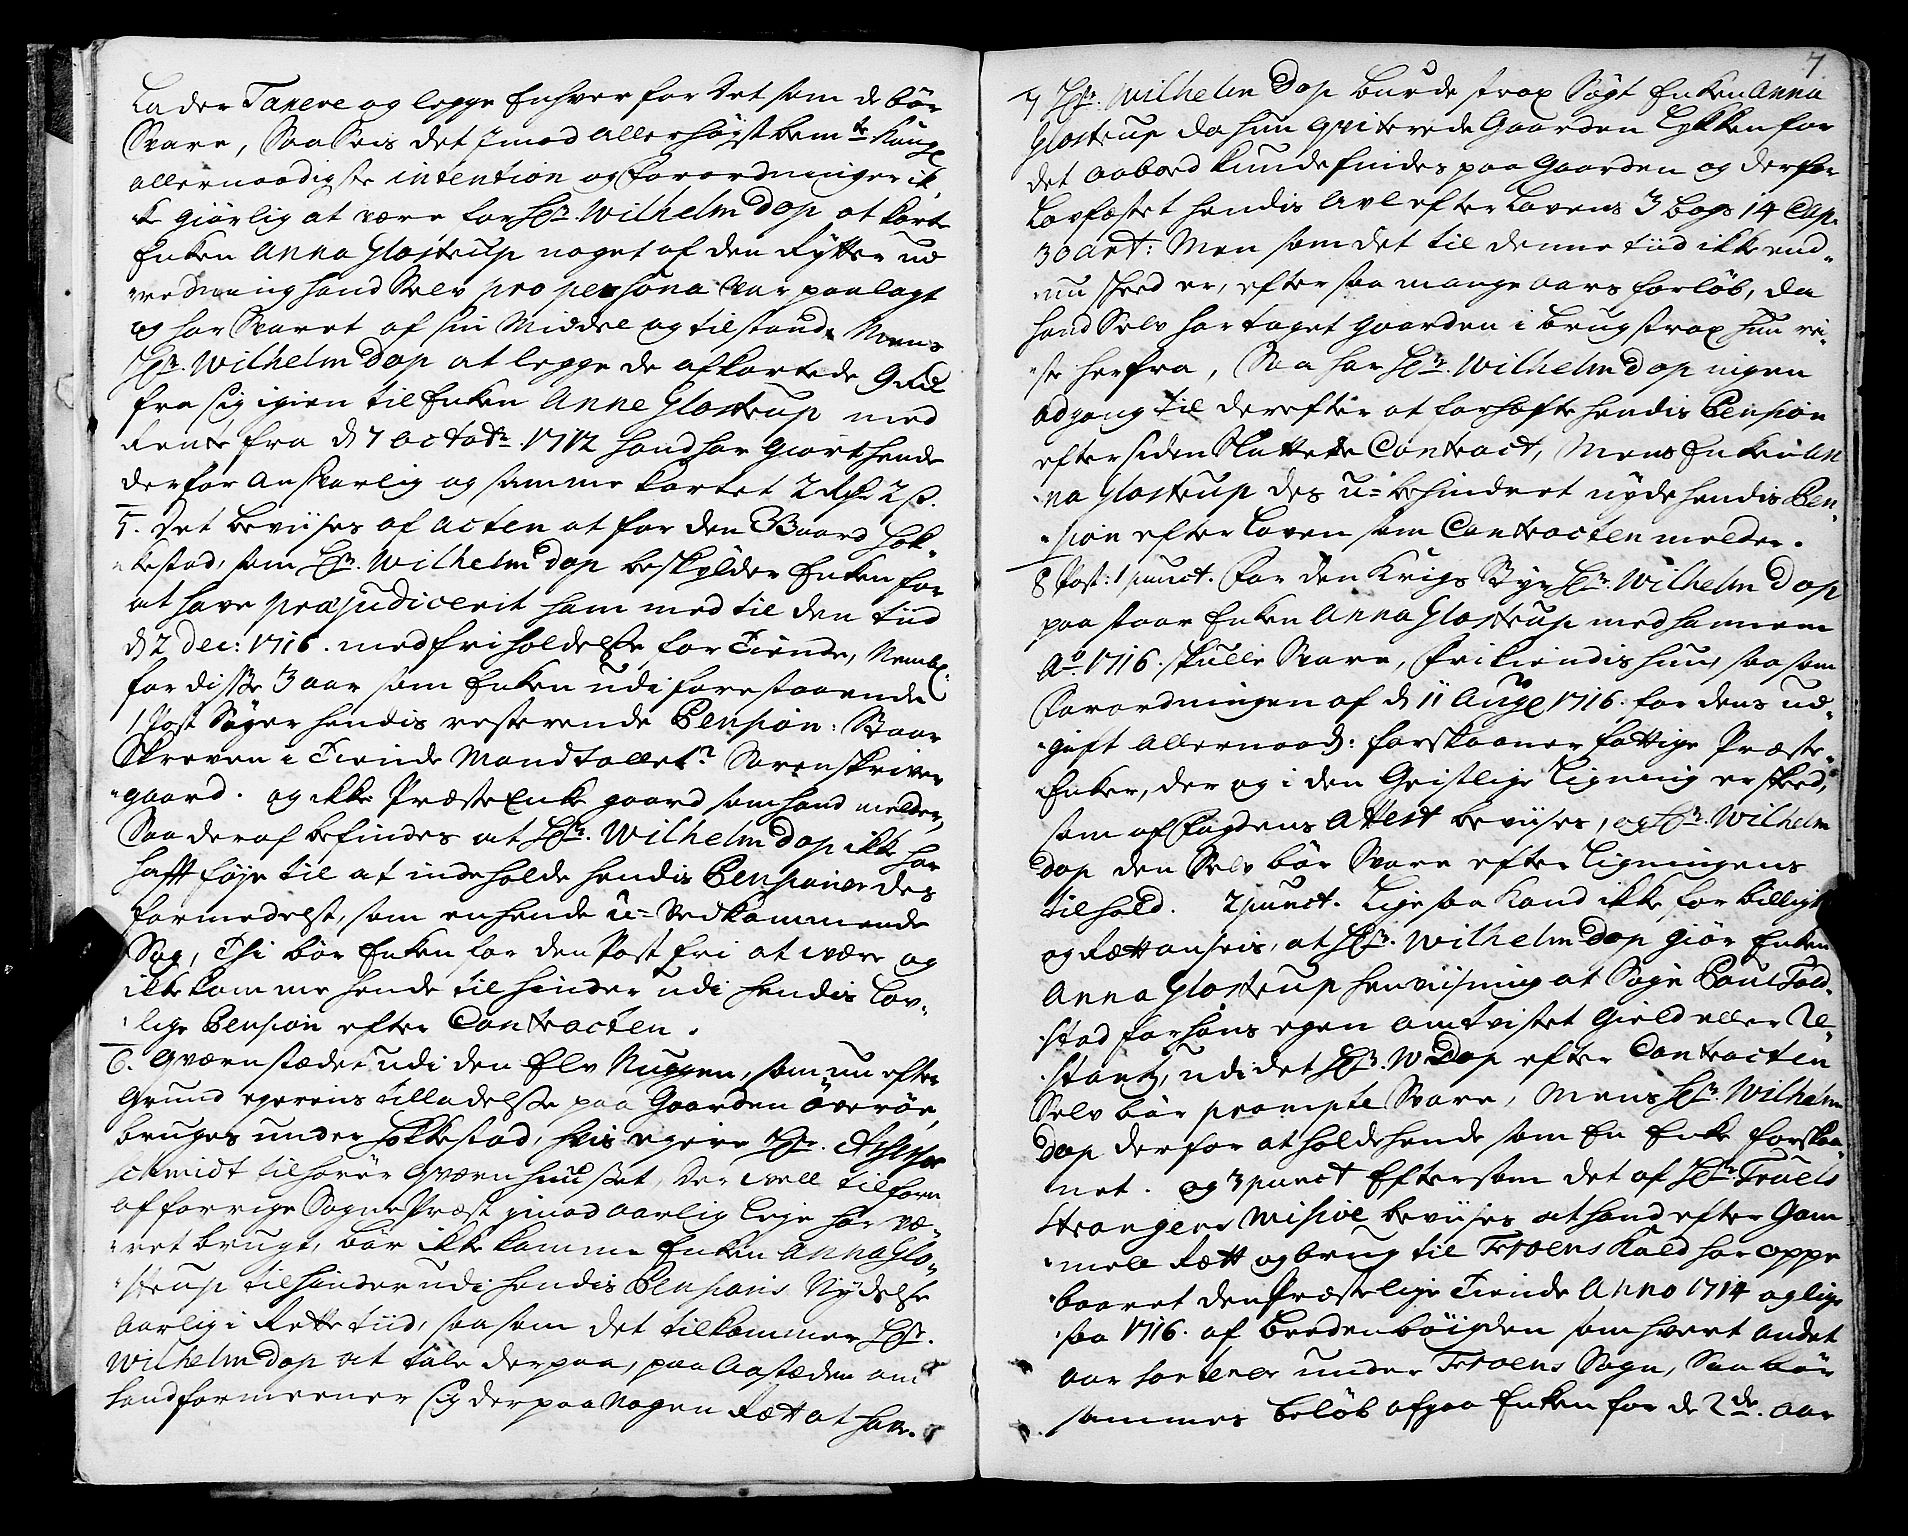 Lader Taxere og legge Enhver for det som de bør
Svare, Saa Seis det Imod allerhøyst bemte Kongl
allernaadigste intention og Forordninger ik,
ke giørlig at være for Hr. Wilhelm Dop at korte
Enken Anna Glostrup noget af den Rytter ud
redning hand Selv pro persona var paalagt
og har Svaret af sin Middel og tilstand. Mens
Hr. Wilhelm Dop at legge de afkortede 9 Rd
fra sig igien til Enken Anne Glostrup med
Rente fra d 7 octobr. 1712 hand har giort hende
derfor ansvarlig og samme kortet 2 Rd 2 s.
5. Det beviises af acten at for den Gaard Hok„
„kestad, som Hr. Wilhelm Dop beskylder Enken for
at have præjudicerit ham med til den tiid
d 2 Dec: 1716. med friholdelse for Tiende, Nembl:
for disse 3 aar som Enken udi forestaaende
1 Post Søger hendis resterende Pension: Staar
Skreven i Tiende Mandtallet Sorenskriver
„gaard. og ikke PræsteEnke gaard som hand melder,
Saa deraf befindes at Hr. Wilhelm Dop ikke har
hafft føje til at indeholde hendis Pensioner des
formedelst, som en hende u= Vedkommende
Sag, Thi bør Enken for den Post fri at være og
ikke komme hende til hinder udi hendis Lov„
„lige Pension efter Contracten.
6. Qværnstædet udi den Elv Nuggen, som nu efter
Grund egerens tilladelse paa Gaarden Overøe,
bruges under Hokkestad, hvis egere Hr.
Schmidt tilhører Qværnhuuset, der well tilforn
af forrige SognePræst imod aarlig leje har væ„
„ret brugt, bør ikke komme Enken Anna Glo„
„strup til hinder udi hendis Pensions Nydelse
Aarlig i Rette tiid, saa som det tilkommer Hr.
Wilhelm Dop at tale derpaa, paa Aastæden om
hand formeener sig derpaa nogen Rætt at have.
7
7 Hr. Wilhelm Dop burde strax Søgt Enken Anna
Glostrup da hun qviterede Gaarden Lykken for
det aabord kunde findes paa Gaarden og derfor
Lovfæstet hendis avl efter Lovens 3 bogs 14 Cap.
30 art: Men som det til denne tiid ikke end„
„nu skeed er, efter saa mange aars forløb, da
hand Selv har taget gaarden i brug strax hun rei„
„ste herfra, Saa har Hr. Wilhelm Dop ingen
adgang til derefter at forhæfte hendis Pension
efter siden Sluttede Contract, Mens Enken An
„na Glostrup des u=behindret nyde hendis Pen„
„sion efter Loven som Contracten melder.
8 Post: 1 punct. For den Krigs Styr Hr. Wilhelm Dop
paastaar Enken Anna Glostrup med hannem
Ao 1716. skulle Svare, frikiendis hun, saa som
Forordningen af d 11 Aug 1716. for dens ud„
„gift allernaad: forskaaner fattige Præste„
„Enker, der og i den Geistlige Ligning er skeed,
som af Fogdens attest beviises, og Hr. Wilhelm
Dop den Selv bør Svare efter Ligningens
tilhold. 2 punct. Lige saa kand ikke for billigt
og Rætt anseis, at Hr. Wilhelm Dop giør Enken
Anna Glostrup henviisning at Søge Poul Fold„
„stad for hans egen omtvistet Gield eller Re„
„stantz, udi det Hr. W Dop efter Contracten
Selv bør prompte Svare, Mens Hr. Wilhelm
Dop derfor at holde hende som En Enke forskaa„
„net. og 3 punct Eftersom det af Hr. Truels
Strangers Misive beviises at hand efter Gam„
„mele Rætt og brug til Froens kald har oppe
„baaret den Præstelige Tiende Anno 1714 og lige
„saa 1716. af Bredenbøigden som hvert andet
aar sorterer under Froens Sogn, Saa bør
sammes beløb afgaa Enken for de 2de. aar